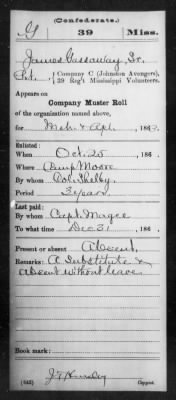 (Confederate.)
G 39 Miss.
James Gassaway, Sr.
Pvt., Company C (Johnston Avengers),
39 Reg't Mississippi Volunteers.
Appears on
Company Muster Roll
of the organization named above,
for Mch & Apl, 186
Enlisted:
When Oct. 25, 186
Where Camp Moore
By whom Col. Shelby
Period 3 years
Last paid:
By whom Capt. Magee
To what time Dec 31, 186
Present or absent Absent
Remarks: A Substitute &
absent without leave
Book mark:
(642) Copyist.